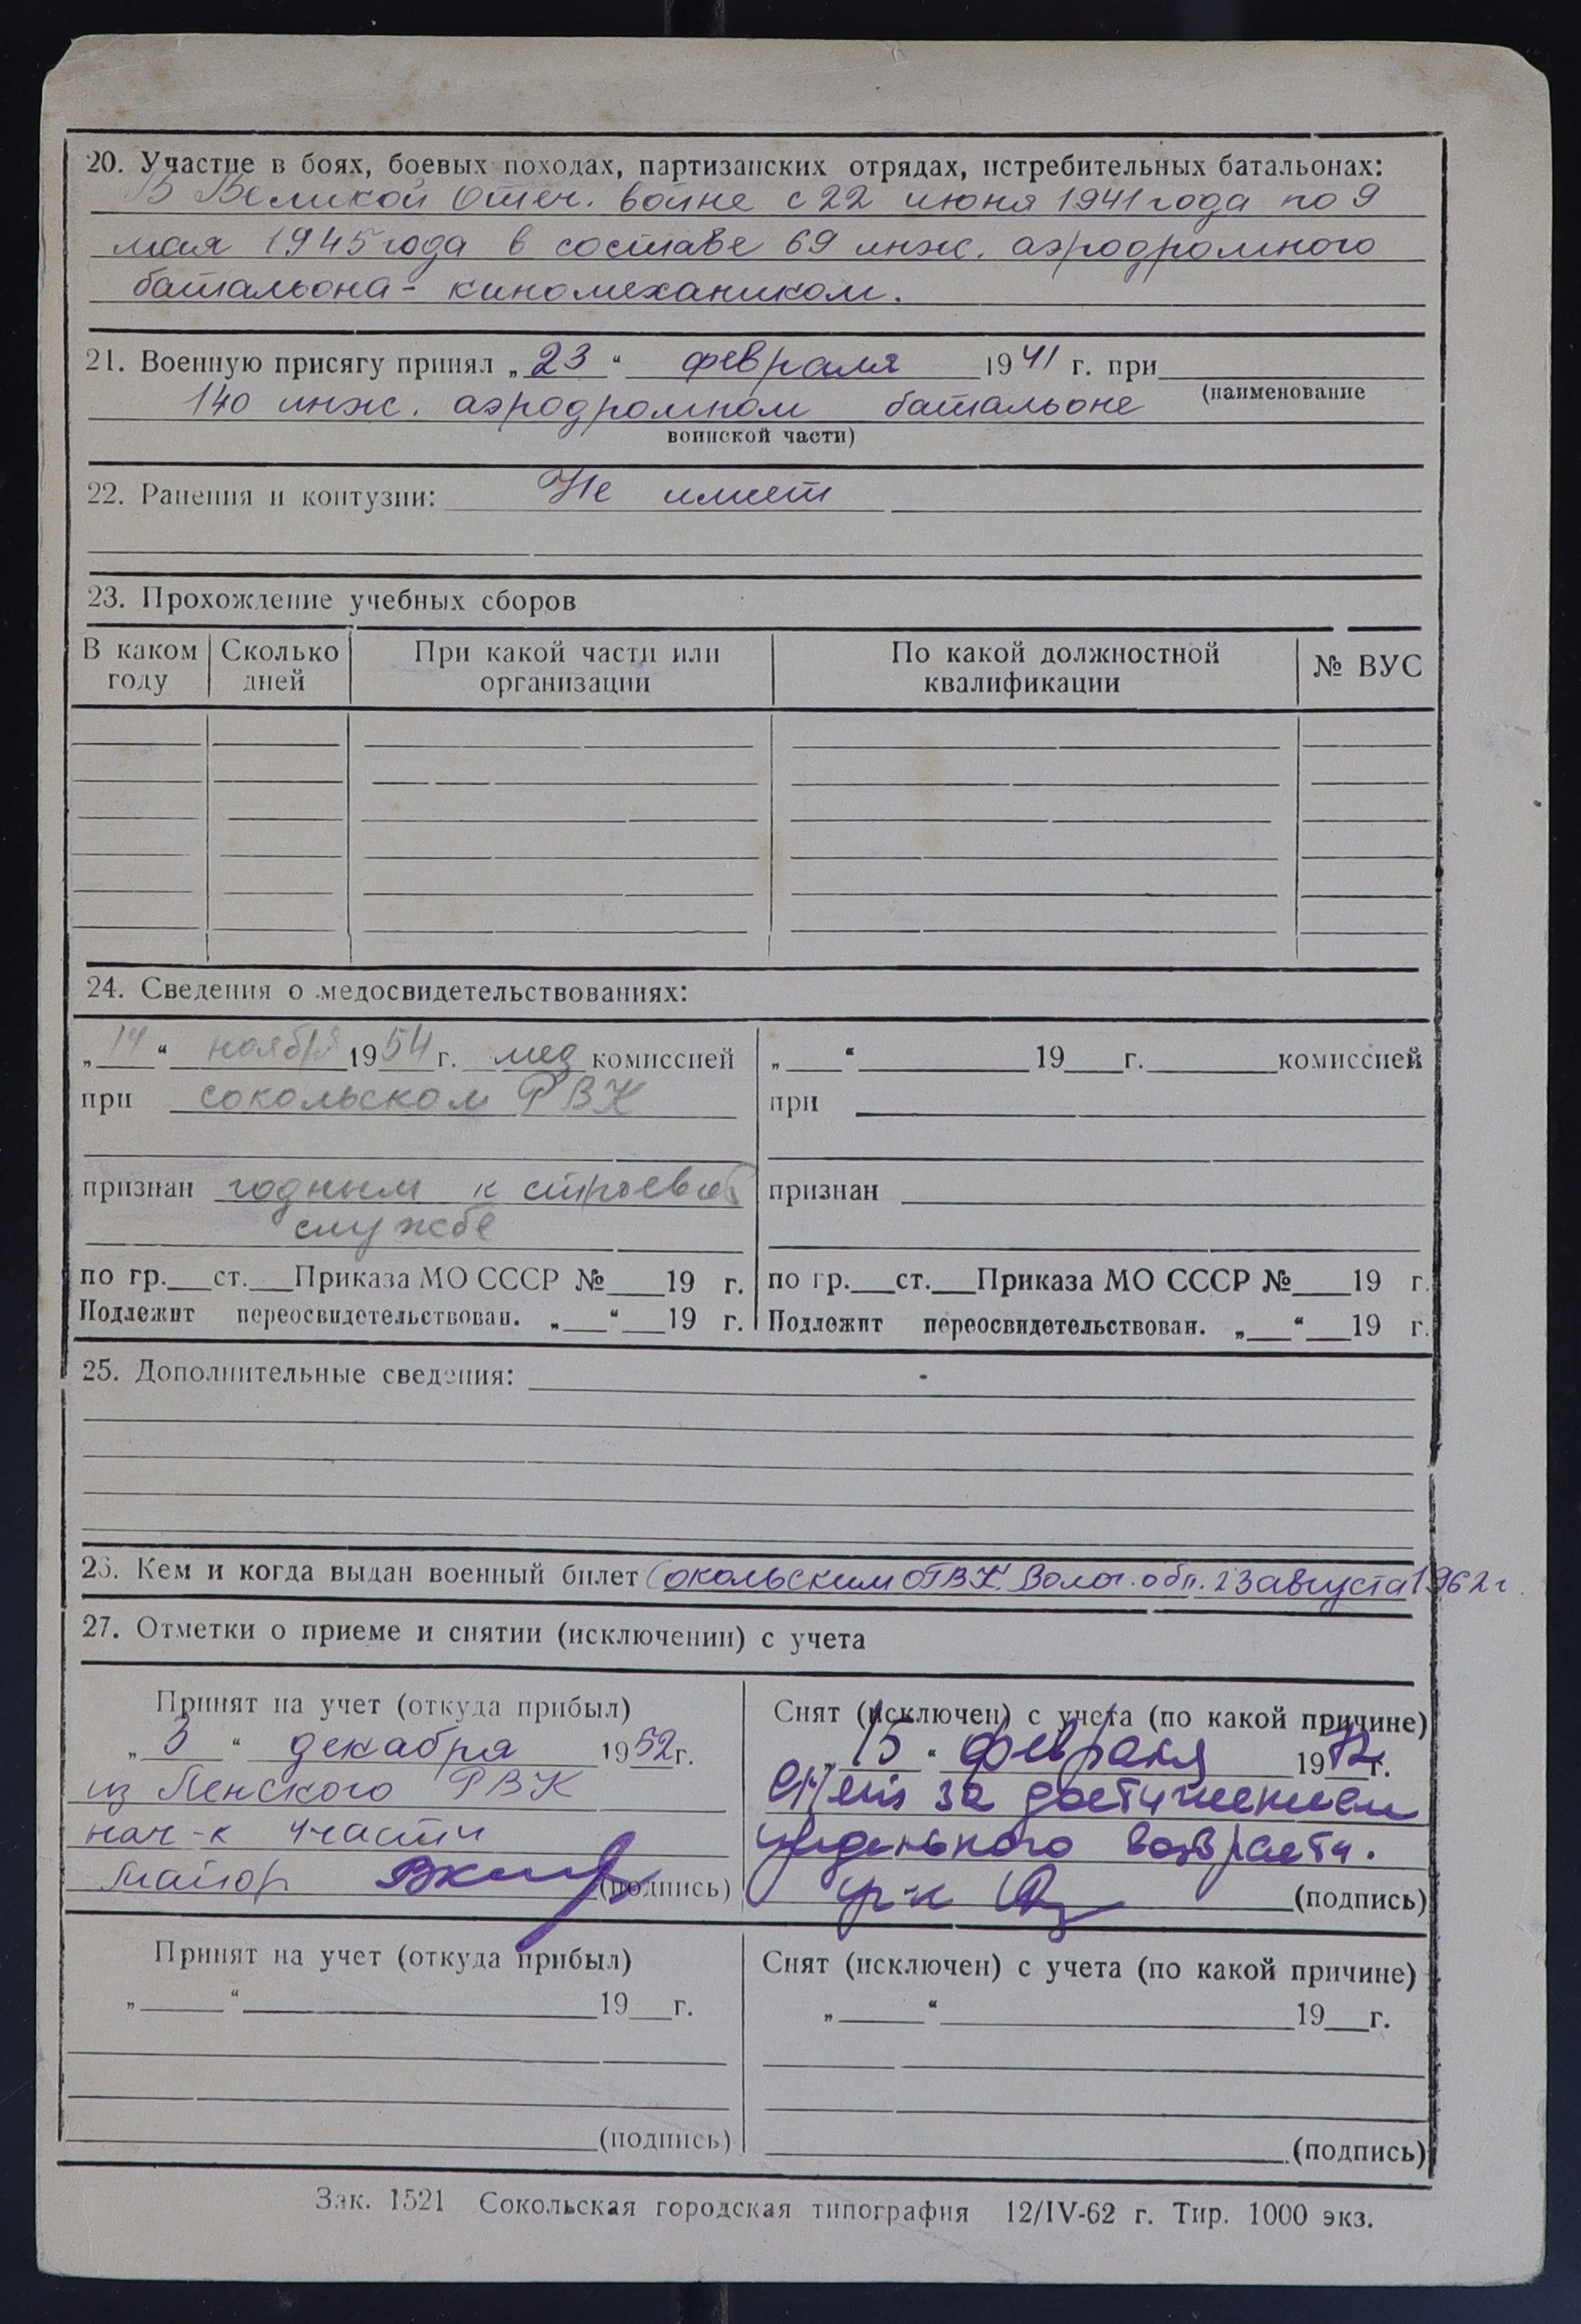 20. Участие в боях, боевых походах, партизанских отрядах, истребительных батальонах:
В Великой Отеч. войне с 22 июня 1941 года по 9
мая 1945 года в составе 69 инж. аэродромного
батальона - киномехаником.
21. Военную присягу принял „23“ февраля 1941 г. при
(наименование
140 инж. аэродромном батальоне
воинской части)
22. Ранения и контузии: Не имеет
23. Прохождение учебных сборов
В каком году Сколько дней При какой части или организации По какой должностной квалификации № ВУС
24. Сведения о медосвидетельствованиях:
„14“ ноября 1954 г. мед комиссией
при сокольском РВК
признан годным к строевой
службе
по гр. ст. Приказа МО СССР № 19 г.
Подлежит переосвидетельствован. „ “ 19 г.
„ “ 19 г. комиссией
при
признан
по гр. ст. Приказа МО СССР № 19 г.
Подлежит переосвидетельствован. „ “ 19 г.
25. Дополнительные сведения:
26. Кем и когда выдан военный билет Сокольским ОГВК Волог. обл. 23 августа 1962 г.
27. Отметки о приеме и снятии (исключении) с учета
Принят на учет (откуда прибыл)
„3“ декабря 1952 г.
из Ленского РВК
нач-к части
майор (подпись)
Снят (исключен) с учета (по какой причине)
„15“ февраля 1972 г.
снят за достижением
предельного возраста.
(подпись)
Принят на учет (откуда прибыл)
„ “ 19 г.
(подпись)
Снят (исключен) с учета (по какой причине)
„ “ 19 г.
(подпись)
Зак. 1521 Сокольская городская типография 12/IV-62 г. Тир. 1000 экз.